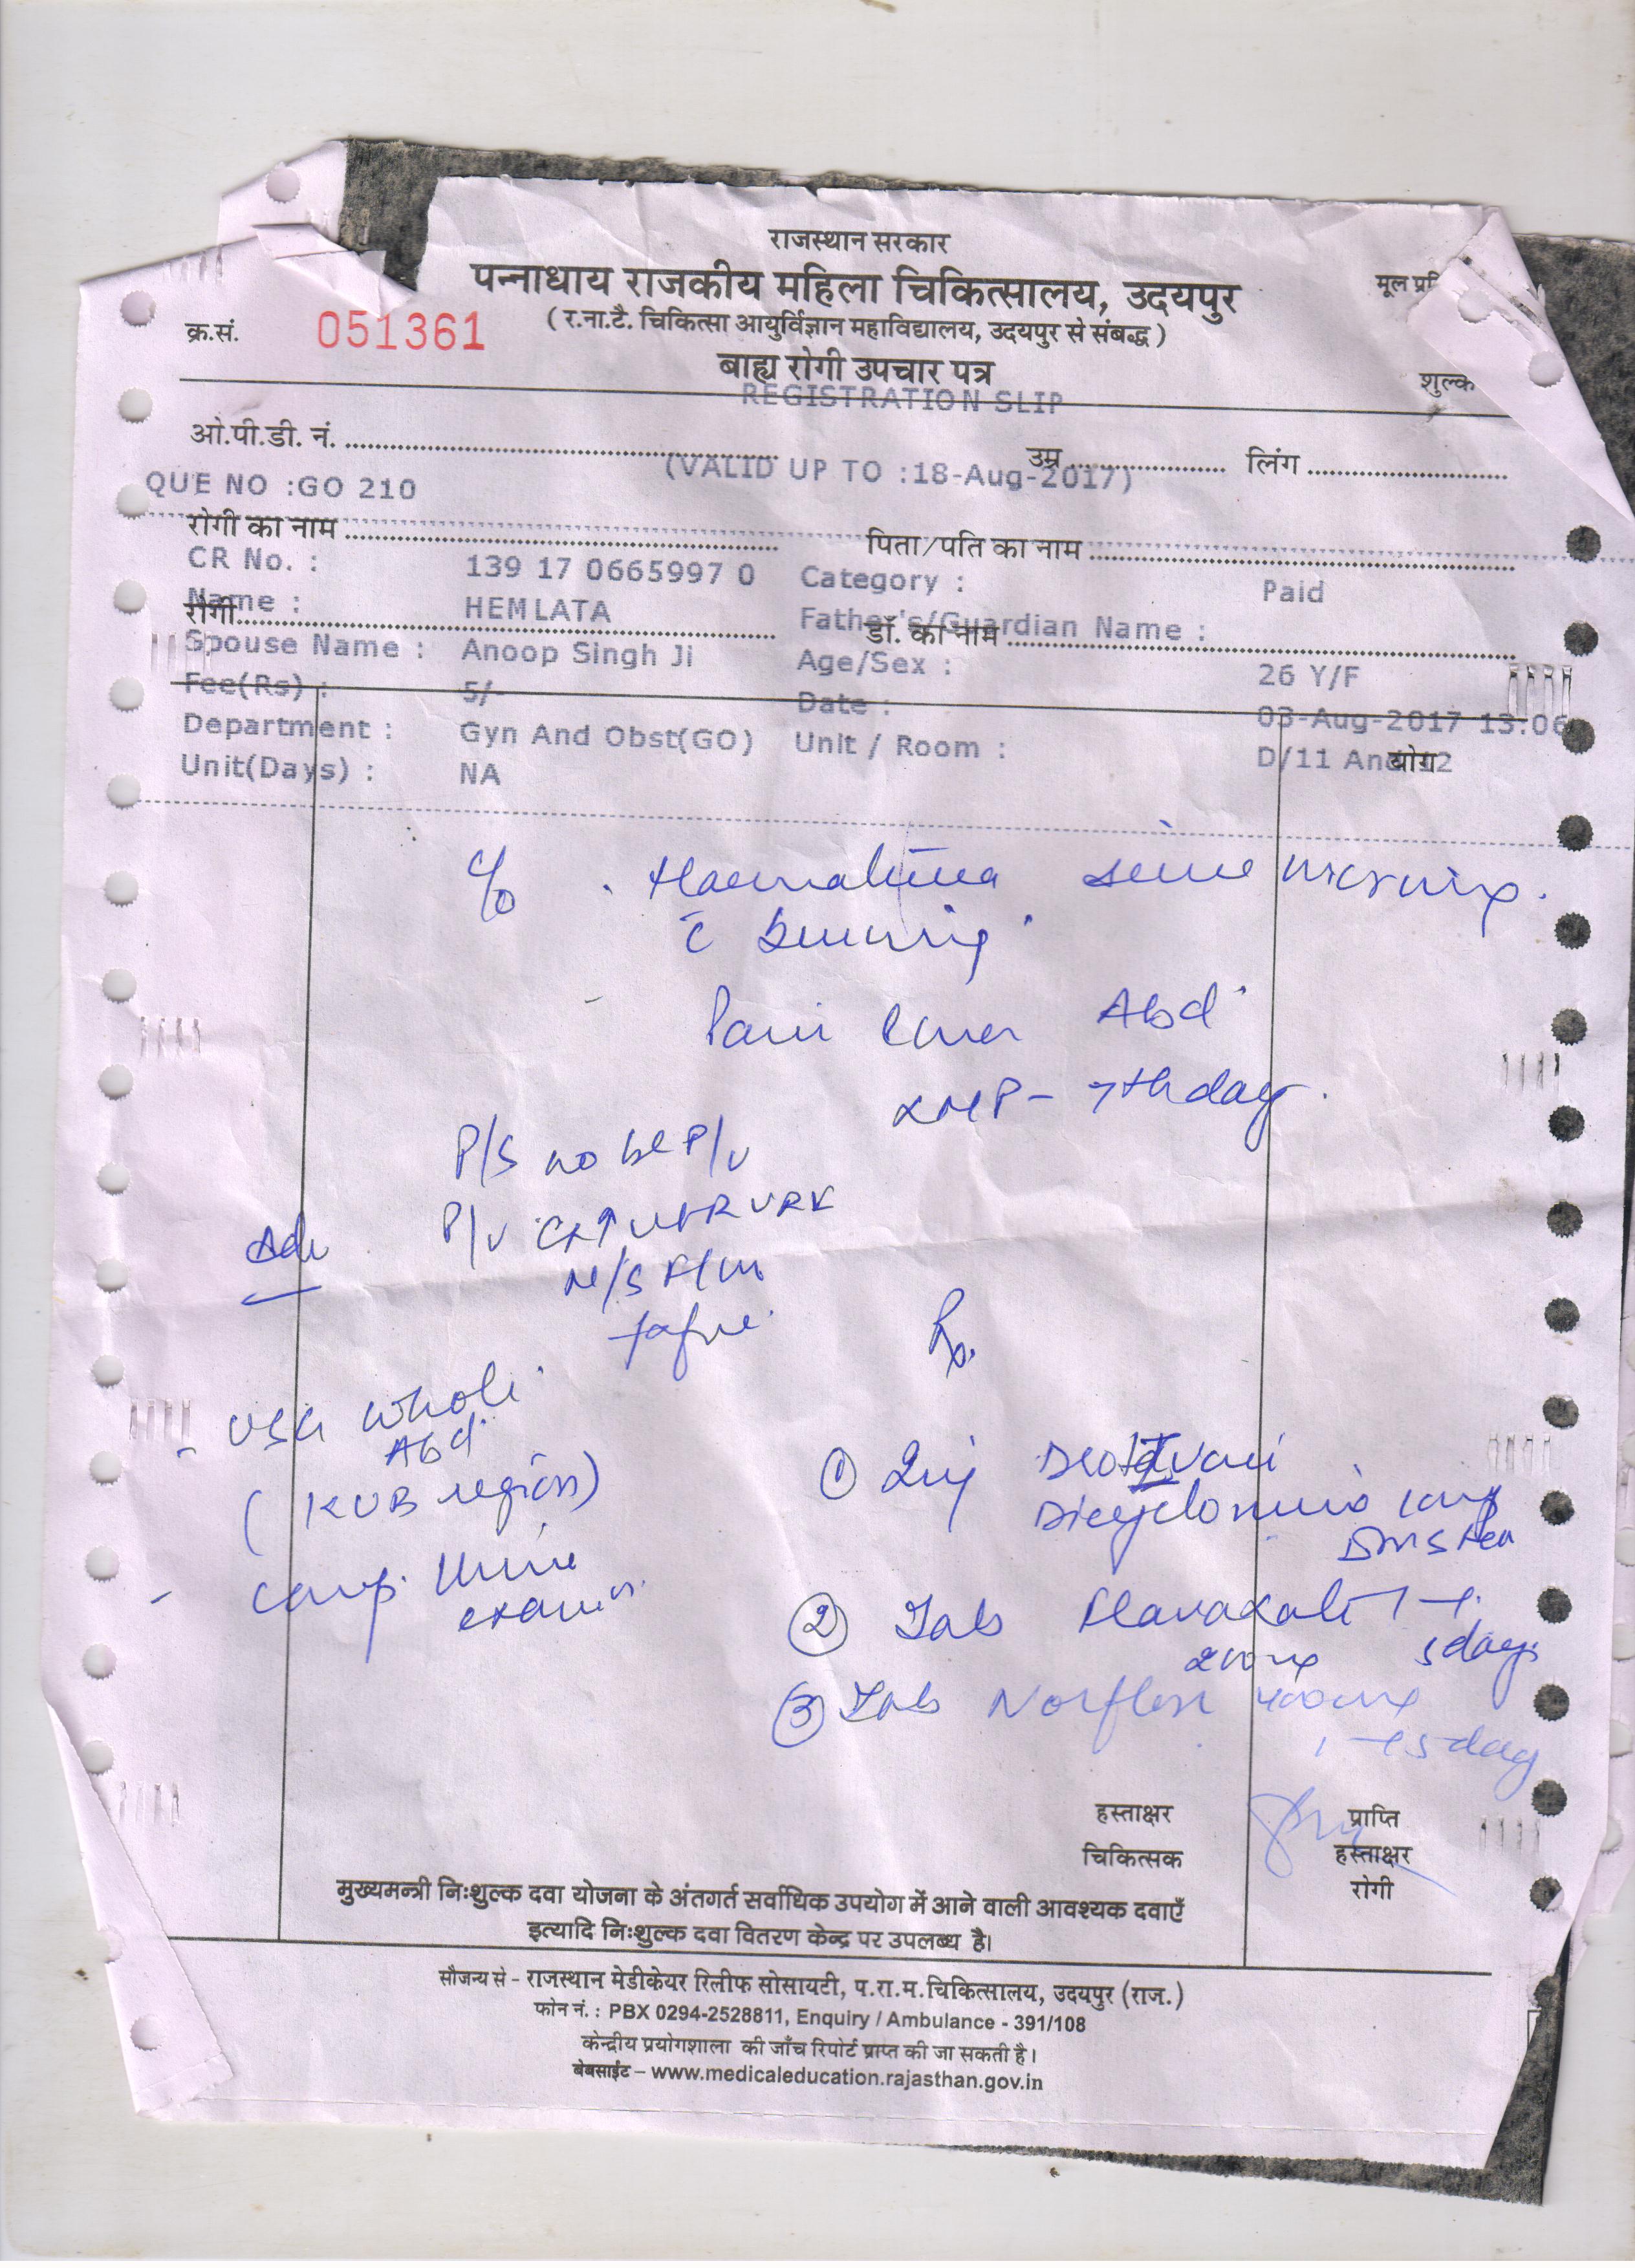 राजस्थान सरकार
पन्नाधाय राजकीय महिला चिकित्सालय, उदयपुर
मूल प्रति
क्र.सं. 051361
( र.ना.टै. चिकित्सा आयुर्विज्ञान महाविद्यालय, उदयपुर से संबद्ध )
बाह्य रोगी उपचार पत्र
शुल्क
REGISTRATION SLIP
ओ.पी.डी. नं. उम्र लिंग
(VALID UP TO :18-Aug-2017)
QUE NO :GO 210
रोगी का नाम पिता/पति का नाम
CR No. : 139 17 0665997 0 Category : Paid
Name : HEMLATA Father's/Guardian Name :
रोगी डॉ. का नाम
Spouse Name : Anoop Singh Ji Age/Sex : 26 Y/F
Fee(Rs) : 5/- Date : 03-Aug-2017 13:06
Department : Gyn And Obst(GO) Unit / Room : D/11 And 12
योग
Unit(Days) : NA
c/o . Haematuria since morning.
c̄ burning
Pain lower Abd
LMP - 7th day.
P/S no bl P/V
P/V
Adv
Rx.
- USG whole
Abd
(KUB region)
① Inj
Dicyclomine
- Comp. Urine
exam
② Tab Flavoxate
200mg 5 days
③ Tab Norflox 400mg
5 day
हस्ताक्षर प्राप्ति
चिकित्सक हस्ताक्षर
रोगी
मुख्यमन्त्री निःशुल्क दवा योजना के अंतगर्त सर्वाधिक उपयोग में आने वाली आवश्यक दवाएँ
इत्यादि निःशुल्क दवा वितरण केन्द्र पर उपलब्ध है।
सौजन्य से - राजस्थान मेडीकेयर रिलीफ सोसायटी, प.रा.म.चिकित्सालय, उदयपुर (राज.)
फोन नं. : PBX 0294-2528811, Enquiry / Ambulance - 391/108
केन्द्रीय प्रयोगशाला की जाँच रिपोर्ट प्राप्त की जा सकती है।
बेबसाईट – www.medicaleducation.rajasthan.gov.in